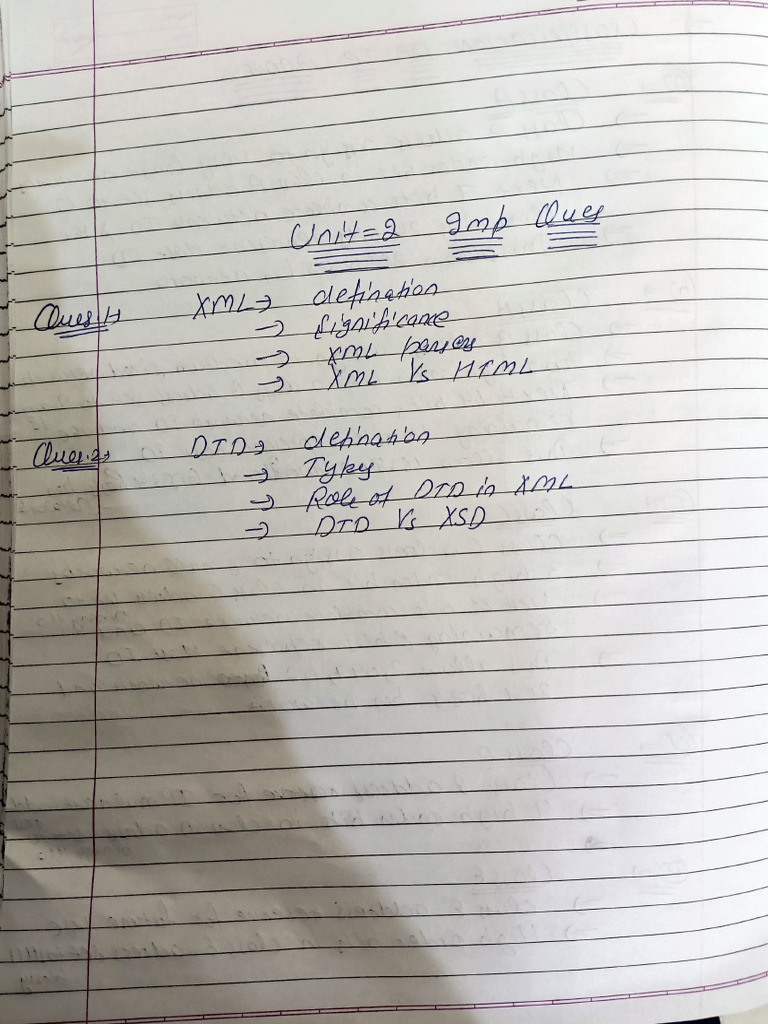 Unit=2 Imp Ques
Ques.1→ XML→ defination
→ Significance
→ XML parser
→ XML Vs HTML
Ques.2→ DTD→ defination
→ Types
→ Role of DTD in XML
→ DTD Vs XSD